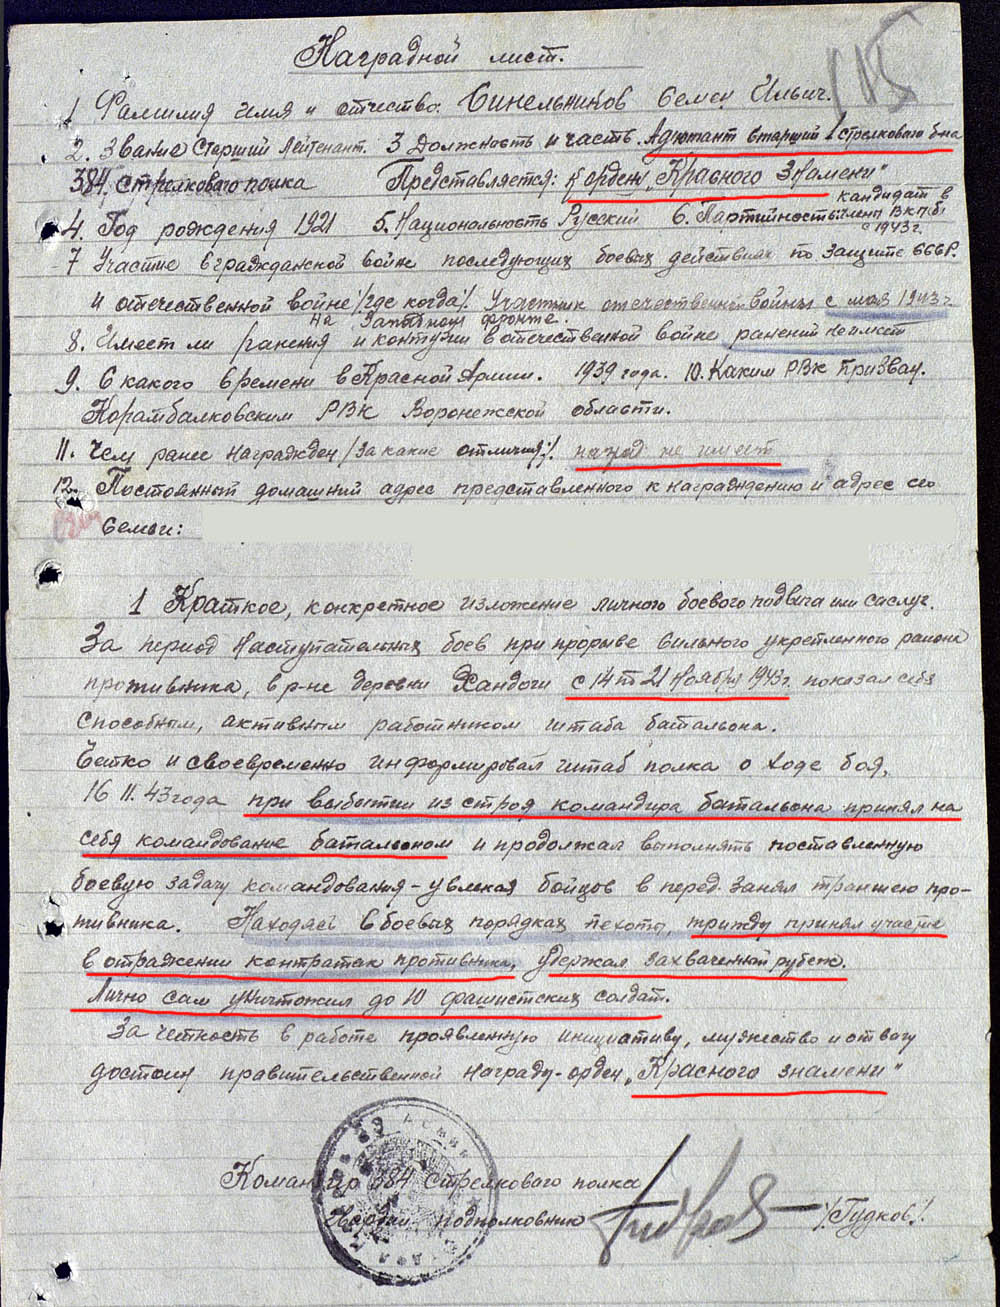 Наградной лист.
1 Фамилия имя и отчество: Синельников Семен Ильич.
2. Звание Старший Лейтенант. 3 Должность и часть. Адютант старший 1 стрелкового б-на
384 стрелкового полка Представляется: К ордену „Красного Знамени"
4. Год рождения 1921 5. Национальность Русский 6. Партийность: кандидат в члены ВКП.б! с 1943 г.
7 Участие в гражданской войне последующих боевых действиях по защите СССР.
и отечественной войне /где когда/. Участник отечественной войны с мая 1943 г.
на Западном фронте.
8. Имеет ли ранения и контузии в отечественной войне ранений не имеет
9. С какого времени в Красной Армии. 1939 года. 10. Каким РВК Призван.
Воронежской области.
11. Чем ранее награжден /за какие отличия/. наград не имеет
12. Постоянный домашний адрес представленного к награждению и адрес его
семьи:
1 Краткое, конкретное изложение личного боевого подвига или заслуг.
За период наступательных боев при прорыве сильного укрепленного района
противника, в р-не деревни Хандоги с 14 по 21 Ноября 1943 г. показал себя
способным, активным работником штаба батальона.
Четко и своевременно информировал штаб полка о ходе боя,
16 11. 43 года при выбытии из строя командира батальона принял на
себя командование батальоном и продолжал выполнять поставленную
боевую задачу командования - увлекая бойцов в перед. занял траншею про-
тивника. Находясь в боевых порядках пехоты, трижды принял участие
в отражении контратак противника, удержал захваченный рубеж.
Лично сам уничтожил до 10 фашистских солдат.
За четкость в работе проявленную инициативу, мужество и отвагу
достоин правительственной награды - орден „Красного знамени"
Командир 384 Стрелкового полка
Гвардии подполковник /Гудков/.